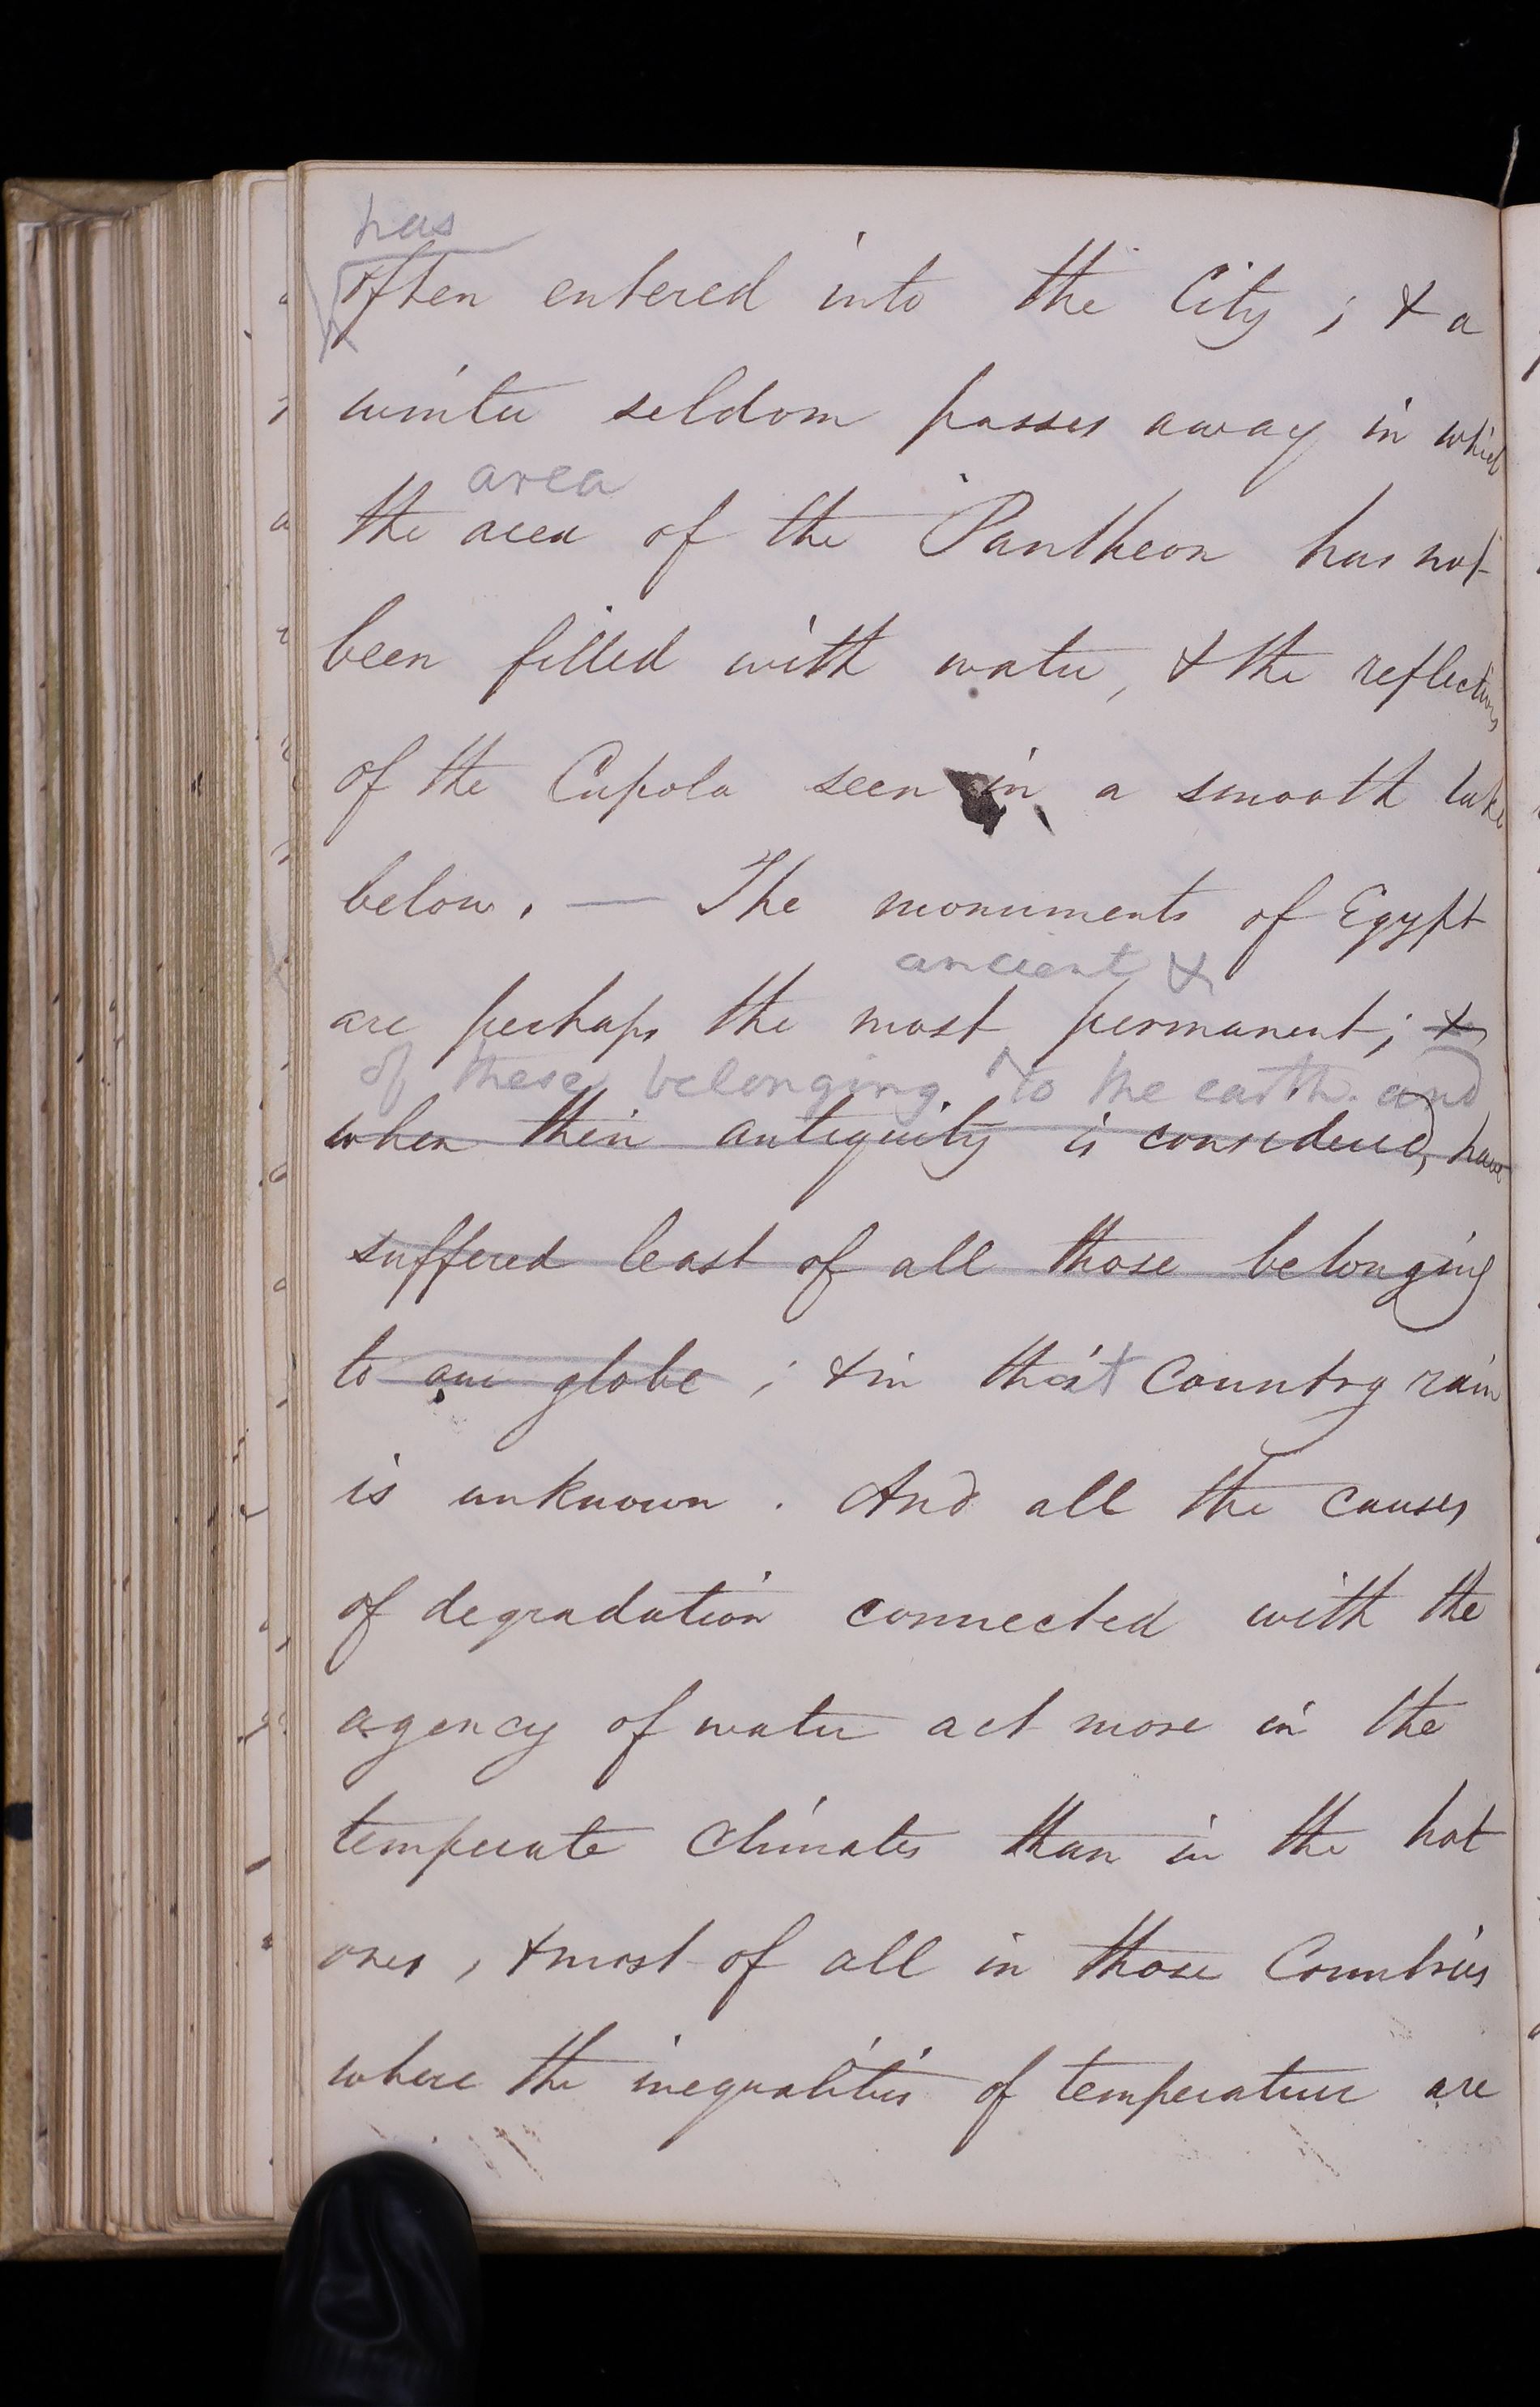 has
often entered into the City ; & a
winter seldom passes away in which
area
the area of the Pantheon has not
been filled with water, & the reflections
of the Cupola seen in a smooth lake
below. — The monuments of Egypt
ancient &
are perhaps the most permanent; &
of these belonging to the earth. and
when their antiquity is considered, have
suffered least of all those belonging
to our globe ; & in that Country rain
is unknown . And all the causes
of degradation connected with the
agency of water act more in the
temperate climates than in the hot
ones, & most of all in those Countries
where the inequalities of temperature are